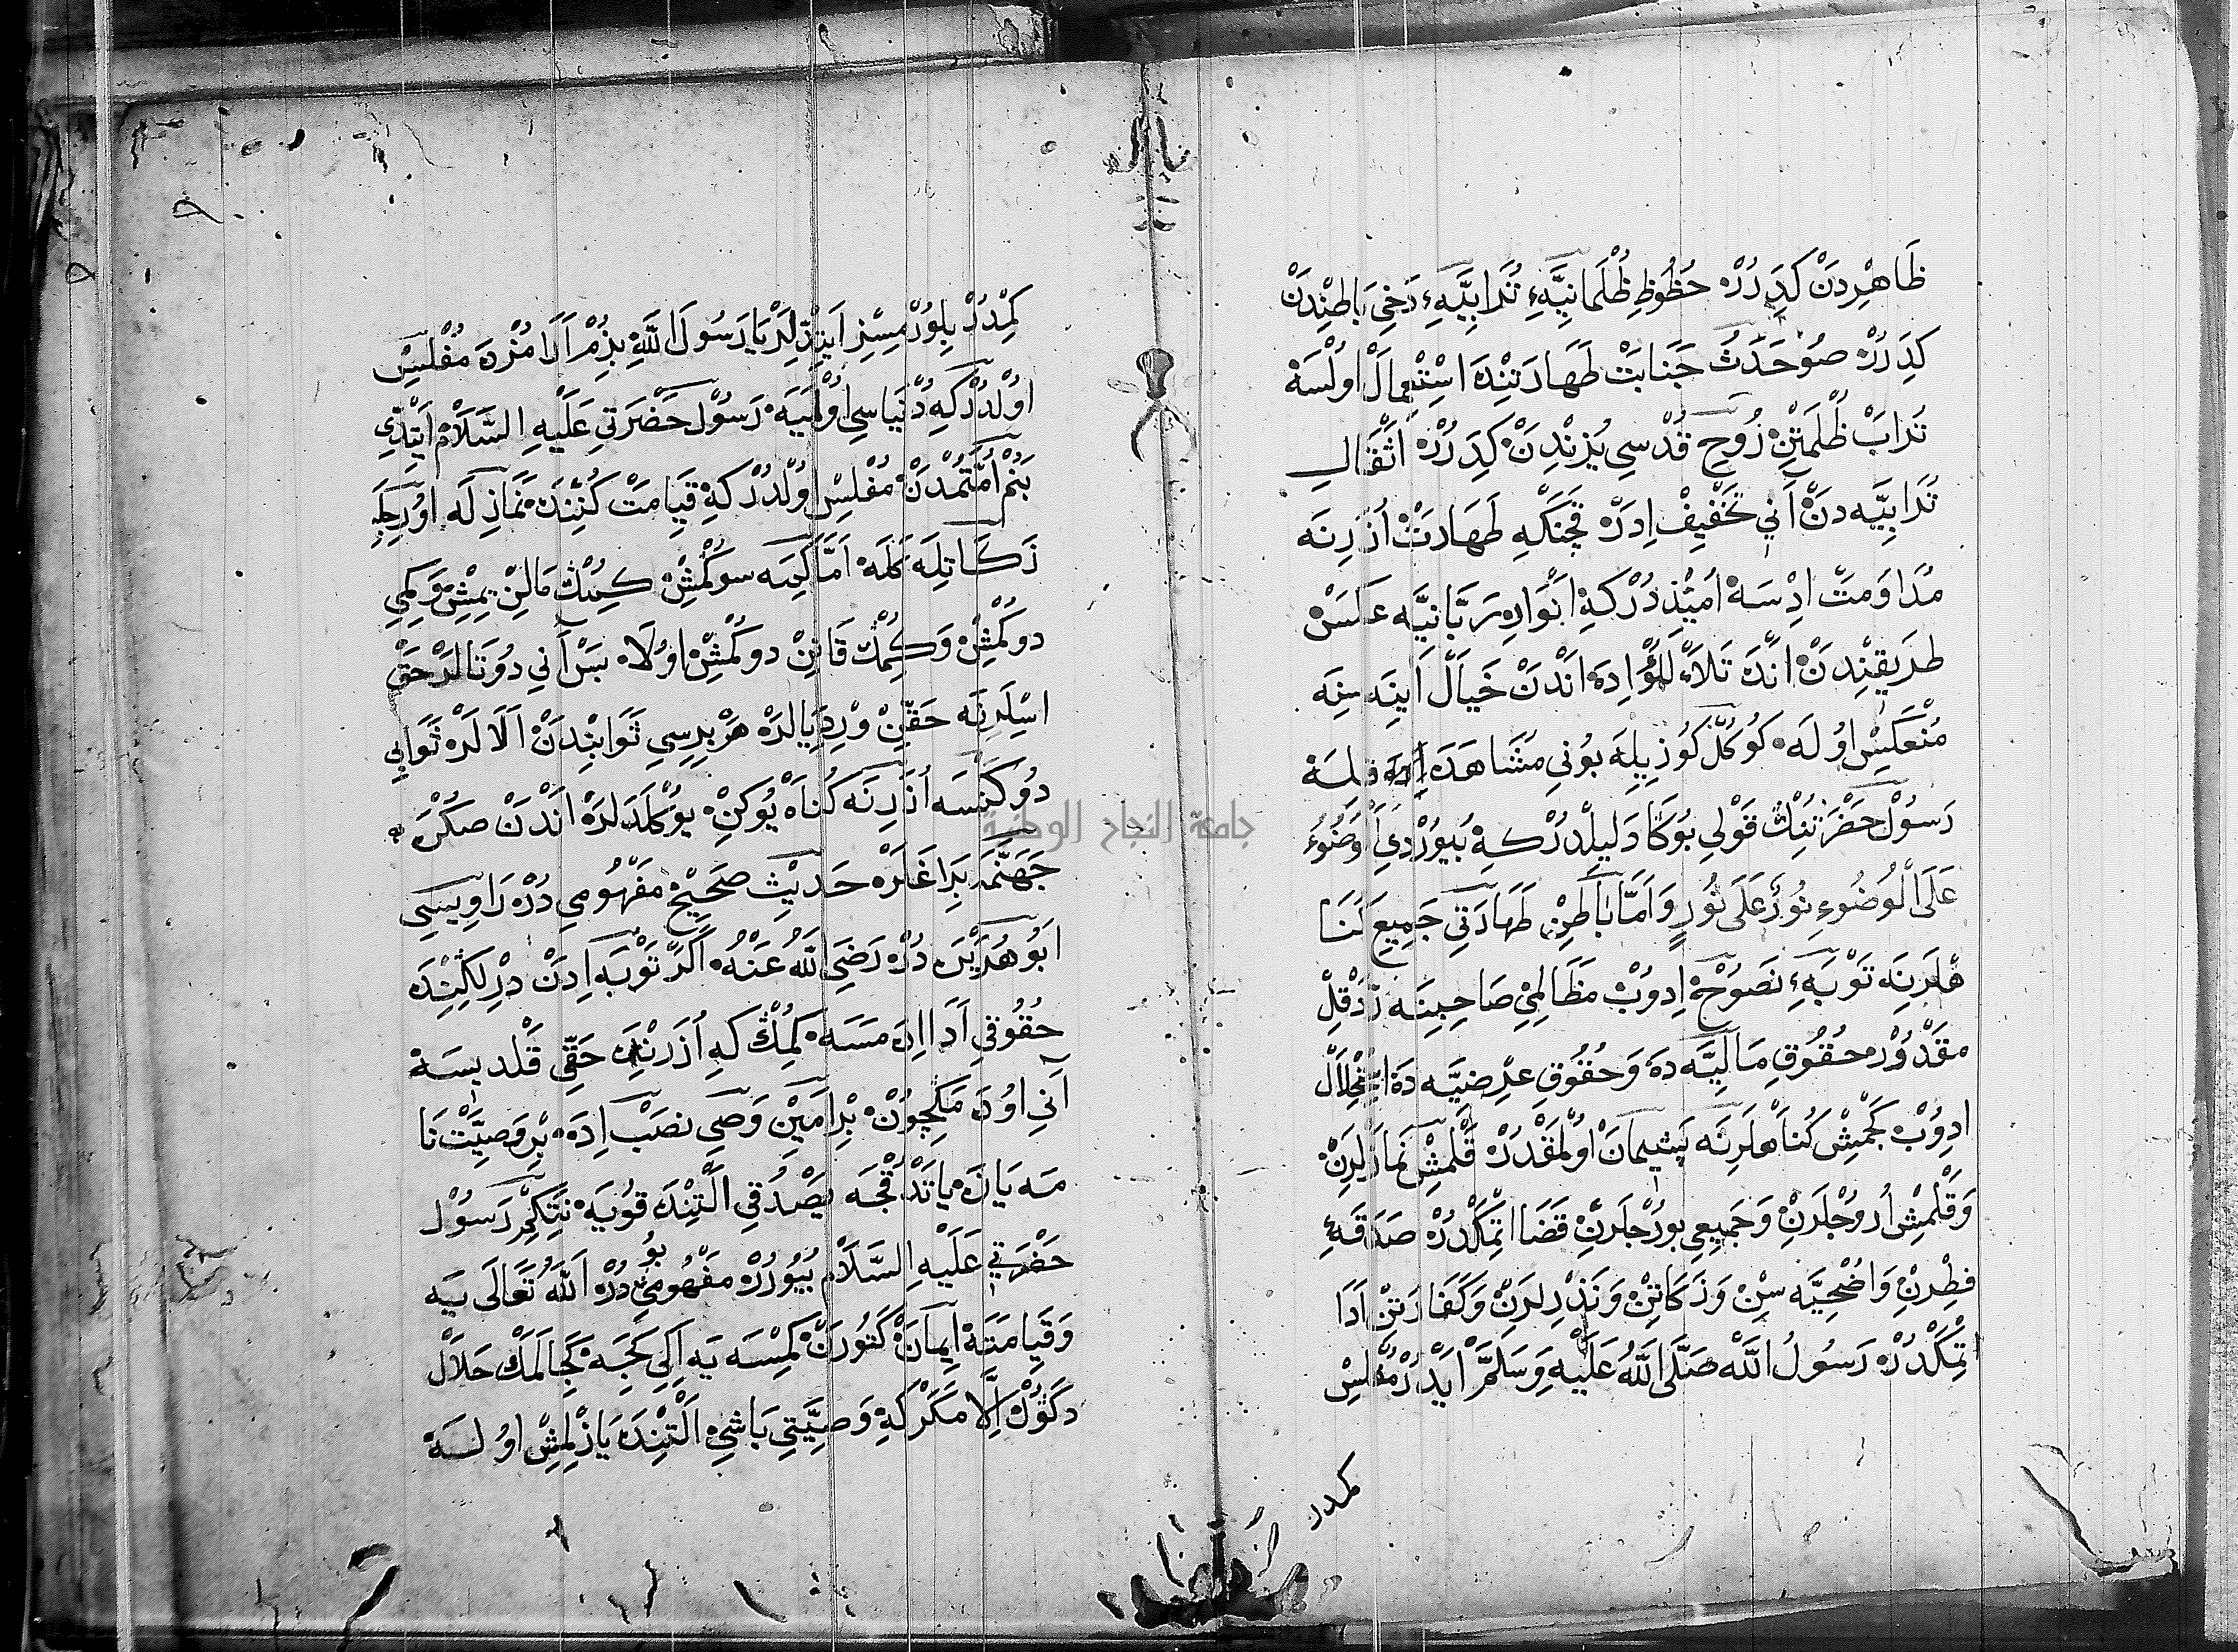 ظَاهْرِدَنْ كِدَرُرْ حُظُوظِ ظُلْمَانِيَّهِٔ تُرَابِيَّهِٔ دَخِي بَاطِنْدَنْ
كِدَرُرْ صُو حَدَثْ جَنَابَتْ طَهَارَتِنْدَه اسْتِعْمَالْ اوُلْسَه
تُرَابْ ظُلْمَتِنْ رُوحِ قُدْسِي يُزِنْدِنْ كِدَرُرْ اَثْقَالِ
تُرَابِيَّه دَنْ اَنِي تَخْفِيفْ اِدَرْ قَچَنْكَه طَهَارَتْ اُزَرِنَه
مُدَاوَمَتْ ادِسَه اُمِيْذْدُرْ كَه اَنْوَارِ رَبَّانِيَّه عَكْسْ
طَرِيقِنْدِنْ اَنْدَه تَلَأْلُؤْ اِدَه اَنْدَنْ خَيَالْ اَينَه سِنَه
مُنْعَكِسْ اوُلَه كُوكُلْ كُوزِيلَه بُونِي مُشَاهَدَه اِدَه قِلِسَه
رَسُولْ حَضْرَتِنِكْ قَوْلِي بُوكَا دَلِيلْدُرْ كِه بُيُورْدِي اَلْوُضُوءُ
عَلَى الْوُضُوءِ نُورٌ عَلَى نُورٍ وَاَمَّا بَاطِنْ طَهَارَتِي جَمِيعِ كُنَا
هْلَرِنَه تَوْبَهِٔ نَصُوحَه اِدوُبْ مَظَالِمِي صَاحِبِنَه رَدْ قِلْ
مَقْدُورْ حُقُوقِ مَالِيَّه دَه وَحُقُوقِ عِرْضِيَّه دَه اسْتِحْلَالْ
ادِوُبْ كَچْمِشْ كُنَاهلَرِنَه پَشِيمَانْ اوُلْمَقْدُرْ قَلْمِشْ نَمَازْلَرِنْ
وَقَلْمِشْ اُروُجْلَرِنْ وَجَمِيعِ بورُجْلَرِنْ قَضَا اتْمَكْدُرْ صَدَقَهِٔ
فِطْرِنْ وَاُضْحِيَّه سِنْ وَزَكَاتِنْ وَنَذِرْلَرِنْ وَكَفَّارَتِنْ اَدَا
اتْمَكْدُرْ رَسُولُ اللَّه صَلَّى اللَّهُ عَلَيْهِ وَسَلَّمَ اَيْدُرْ مُفْلِسْ
كمدر
كِمْدُرْ بِلوُرْمِسِزْ اَيتْدِلَرْ يَا رَسُولَ اللَّهِ بِزُمْ اَرَامُزْدَه مُفْلِسْ
اوُلْدُرْ كِه دُنْيَاسِي اوُلْمَيَه رَسُولْ حَضْرَتِي عَلَيْهِ السَّلَامْ اَيتْدِي
بَنُمْ اُمَّتُمْدَنْ مُفْلِسْ اوُلْدُرْ كِه قِيَامَتْ كُنِنْدَه نَمَازِلَه اوُرجِلَه
زَكَاتِلَه كَلَه اَمَّا كِمِيَه سوكْمِشْ كِمِنُكْ مَالِنْ يِمِشْ وَكِمِي
دوكْمِشْ وَكِمُكْ قَانِنْ دوكْمِشْ اوُلَا بَسْ اَنِي دُوتَالَرْ حَقْ
اسْلَرِنَه حَقِّنْ وِرِدِيَالَرْ هَرْ بِرِسِي ثَوَابِنْدَنْ اَلَالَرْ ثَوَابِي
دُوكَنْسَه اُزَرِنَه كُنَاهْ يُوكِنْ يُوكْلَدَلَرْ اَنْدَنْ صُكْرَه
جَهَنَّمَه بِرَاغَلَرْ حَدِيثِ صَحِيحْ مَفْهُومِي دُرْ رَاوِيسِي
اَبُو هُرَيْرَه دُرْ رَضِيَ اللَّهُ عَنْهُ اَكَرْ تَوْبَه اِدَنْ دِرْلِكِنْدَه
حُقُوقِي اَدَا اِدَه مَسَه كِمْنُكْ كِه اُزَرِنْدَه حَقِّي قَلْدِيسَه
اَنِي اوُدَه مَكِچُونْ بِرْ اَمِينْ وَصِي نَصْبْ اِدَه بِرْ وَصِيَّتْ نَا
مَه يَازَه يَاتْدُقْجَه يَصْدُقِي اَلْتِنْدَه قُويَه نِتَكِمْ رَسُولْ
حَضْرَتِي عَلَيْهِ السَّلَامْ بُيُورُرْ مَفْهُومِي بُودُرْ اللَّهُ تَعَالَى يَه
وَقِيَامَتَه اِيمَانْ كَتُورَنْ كِمْسَه يَه اِكِي كِجَه كَجَالَمَكْ حَلَالْ
دَكُوُلْ اِلَّا مَكَرْ كِه وَصِيَّتِي بَاشِي اَلْتِنْدَه يَازِلْمِشْ اوُلَسَه
جامعة النجاح الوطنية